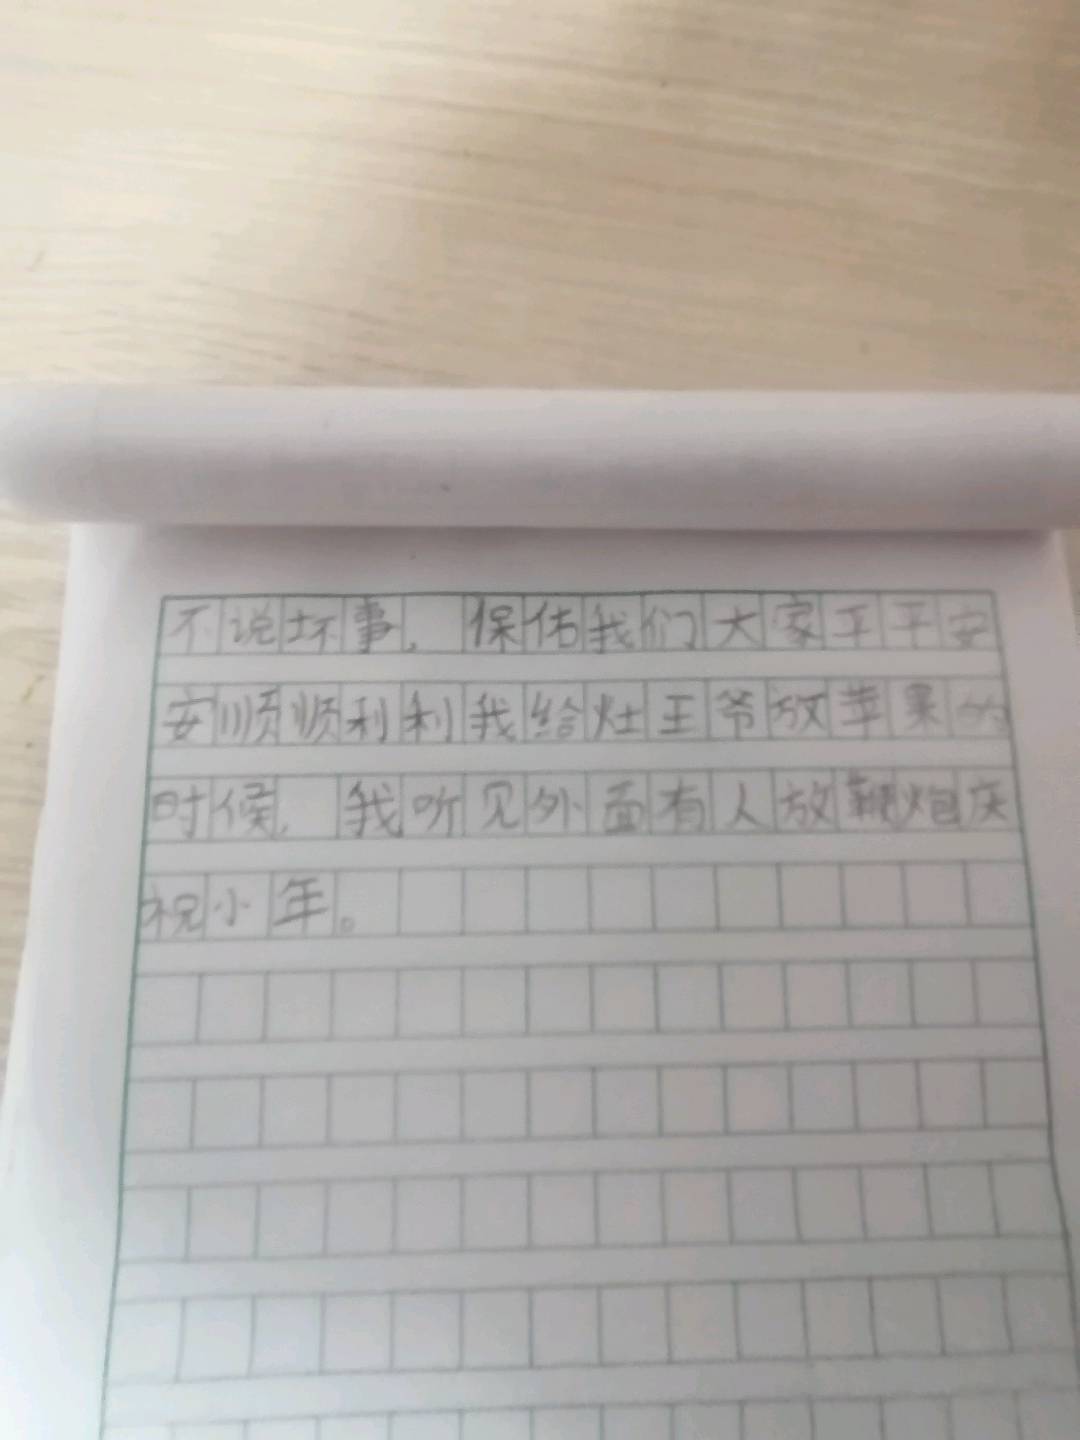 不说坏事，保佑我们大家平平安
安顺顺利利我给灶王爷放苹果的
时候，我听见外面有人放鞭炮庆
祝小年。